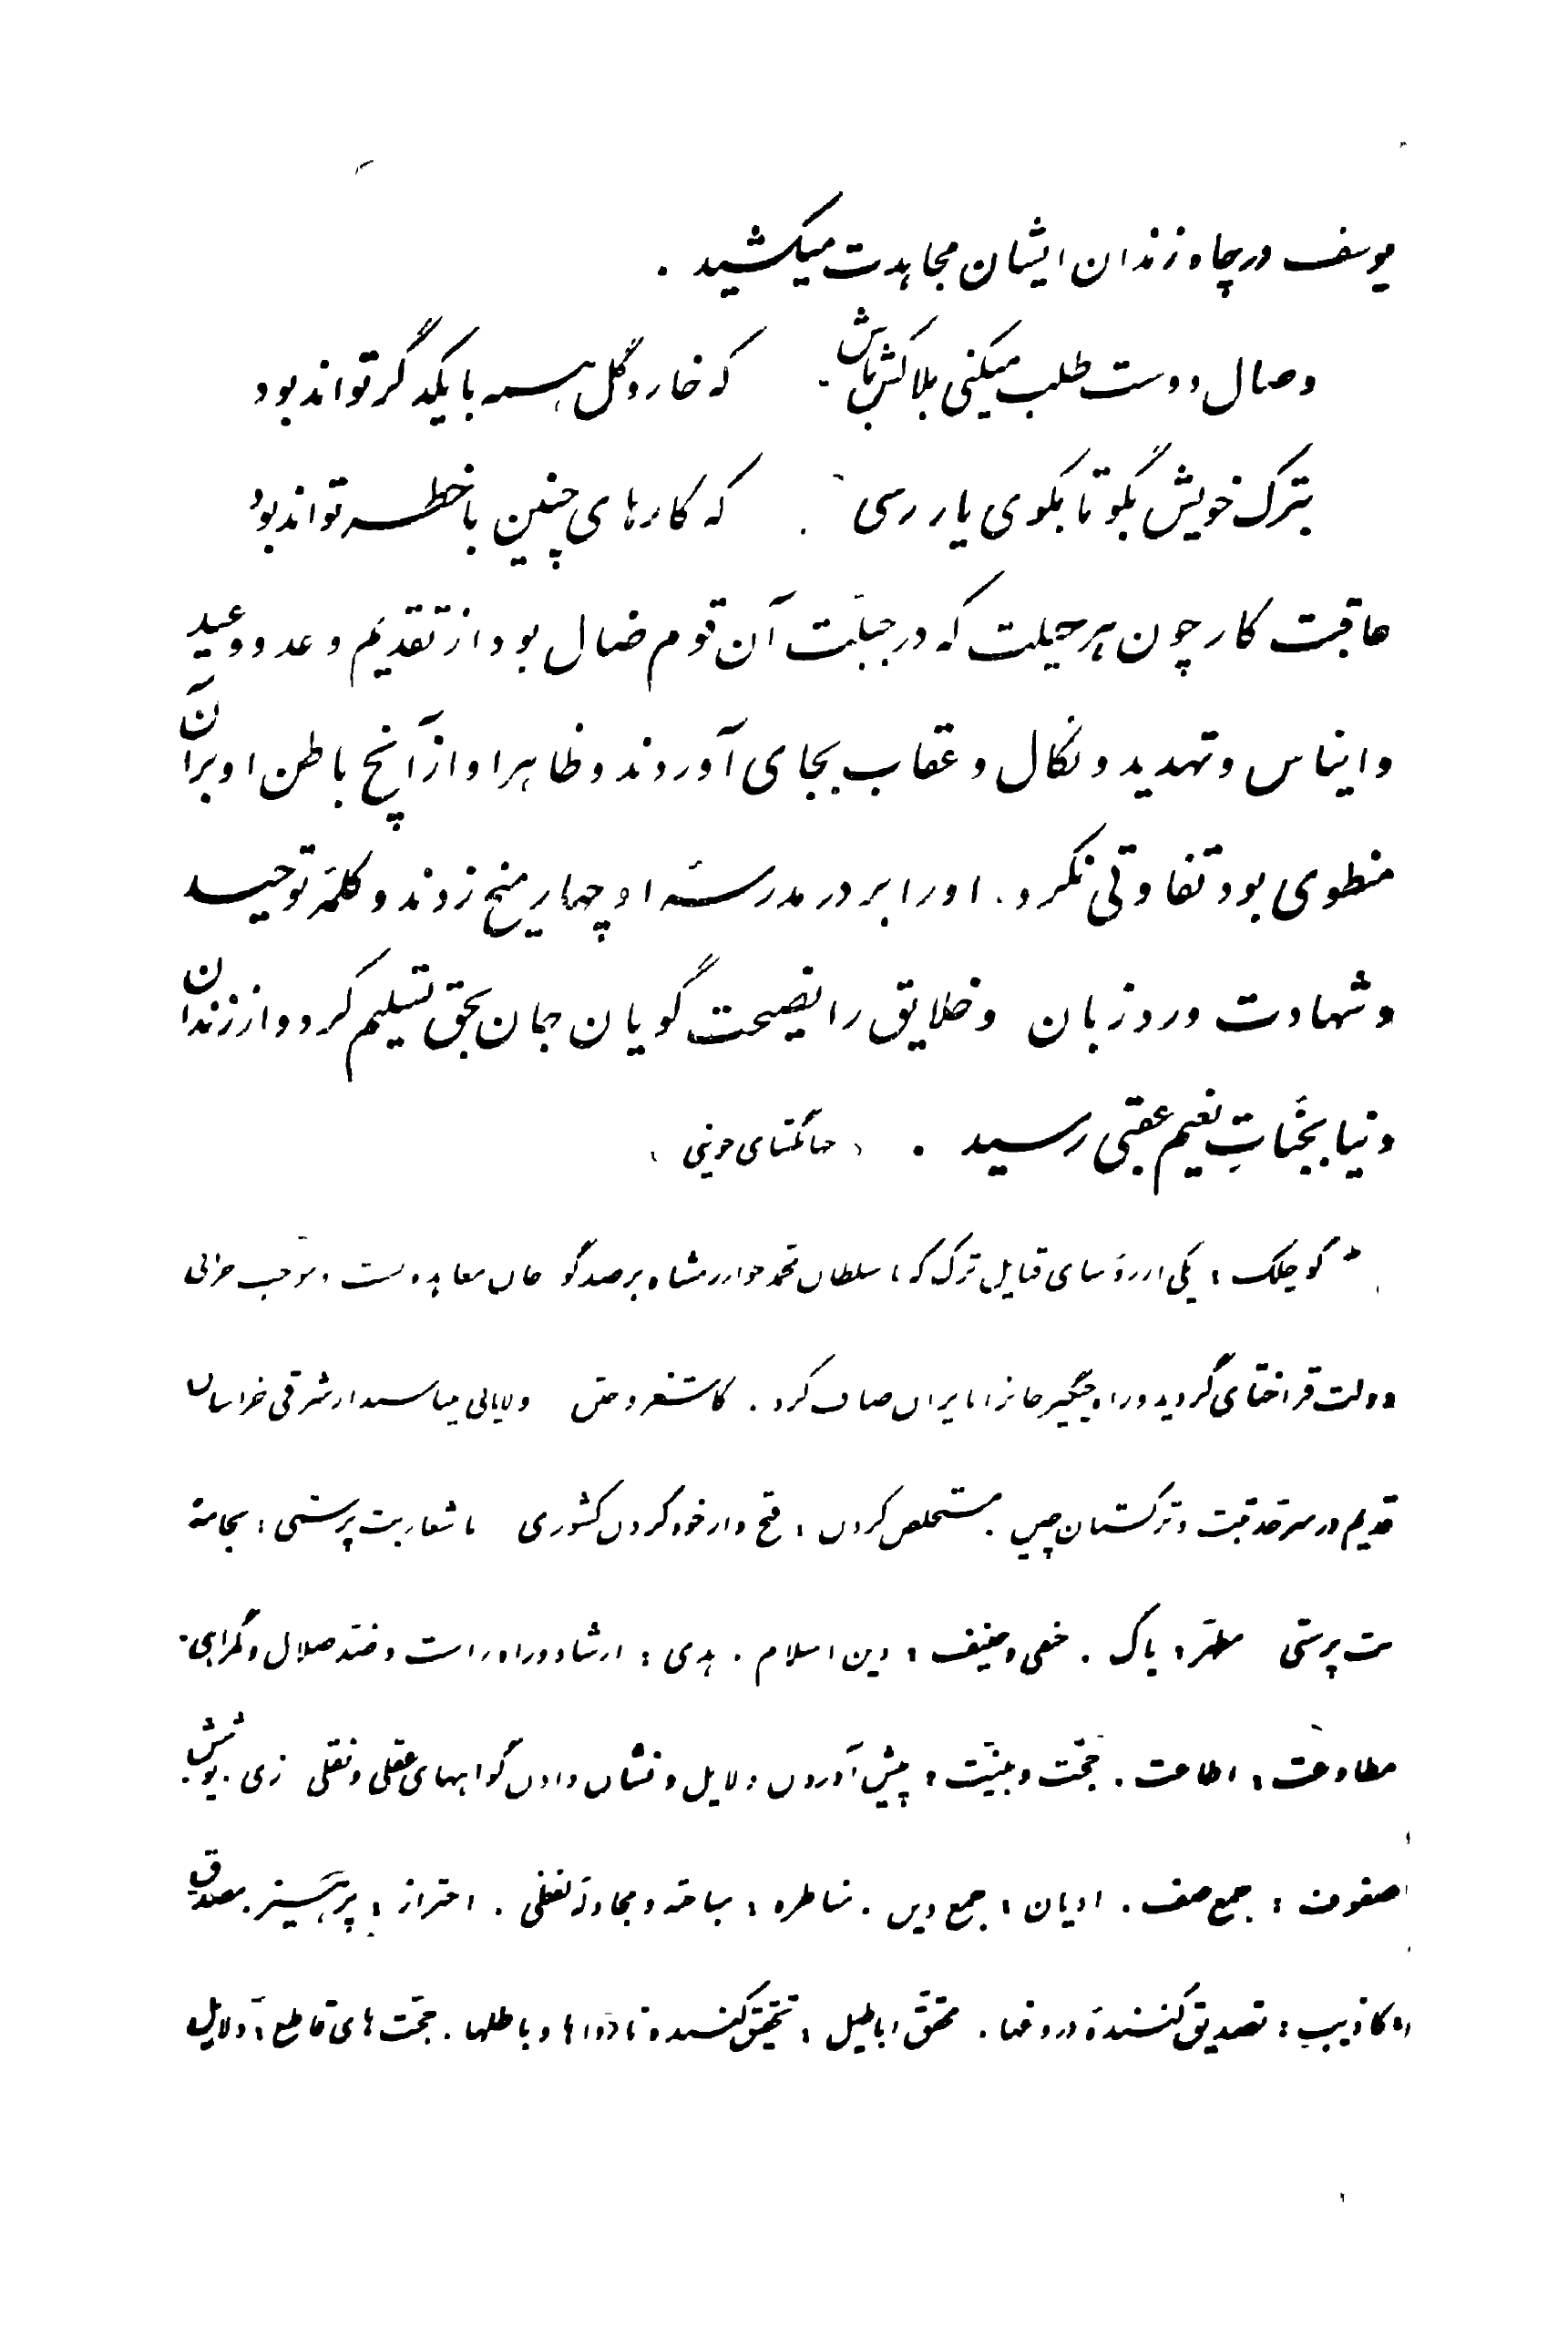 یوسف در چاه زندان ایشان مجاهدت میکشید .
وصال دوست طلب میکنی بلاکش باش که خار و گل همه با یکدگر تواند بود
بترک خویش بگو تا بکوی یار رسی که کارهای چنین با خطر تواند بود
عاقبت کار چون هر حیلت که در جبلّت آن قوم ضال بود از تقدیم وعد و وعید
و ایناس و تهدید و نکال و عقاب بجای آوردند و ظاهر او از آنچ باطن او بر آن
منطوی بود تفاوتی نکرد . او را بر در مدرسهٔ او چهار میخ زدند و کلمهٔ توحید
و شهادت ورد زبان و خلایق را نصیحت گویان جان بحق تسلیم کرد و از زندان
دنیا بجنّاتِ نعیم عقبی رسید . ( جهانگشای جوینی )
* کوچلک : یکی از رؤسای قبایل ترک که با سلطان محمد خوارزمشاه بر ضد گورخان معاهده بست و موجب خرابی
دولت قراختای گردید و راه چنگیز خانرا بایران صاف کرد . کاشغر و ختن ولایاتی میباشند از شرقی خراسان
قدیم در سرحد تبت و ترکستان چین . مستخلص کردن : فتح و از خود کردن کشوری با شعار بت پرستی : بجامهٔ
بت پرستی مطهّر : پاک . حنفی و حنیف : دین اسلام . هدی : ارشاد و راه راست و ضد ضلال و گمراهی .
مطاوعت : اطاعت . حجّت و بیّنت : پیش آوردن دلایل و نشان دادن گواهیهای عقلی و نقلی زی : پوشش
صفوف : جمع صف . ادیان : جمع دین . مناظره : مباحثه و مجادلهٔ لفظی . احتراز : پرهیز . مصدق
اکاذیب : تصدیق کنندهٔ دروغها . محقق اباطیل : تحقیق کننده نارواها و باطلها . حجّت های قاطع : دلایل